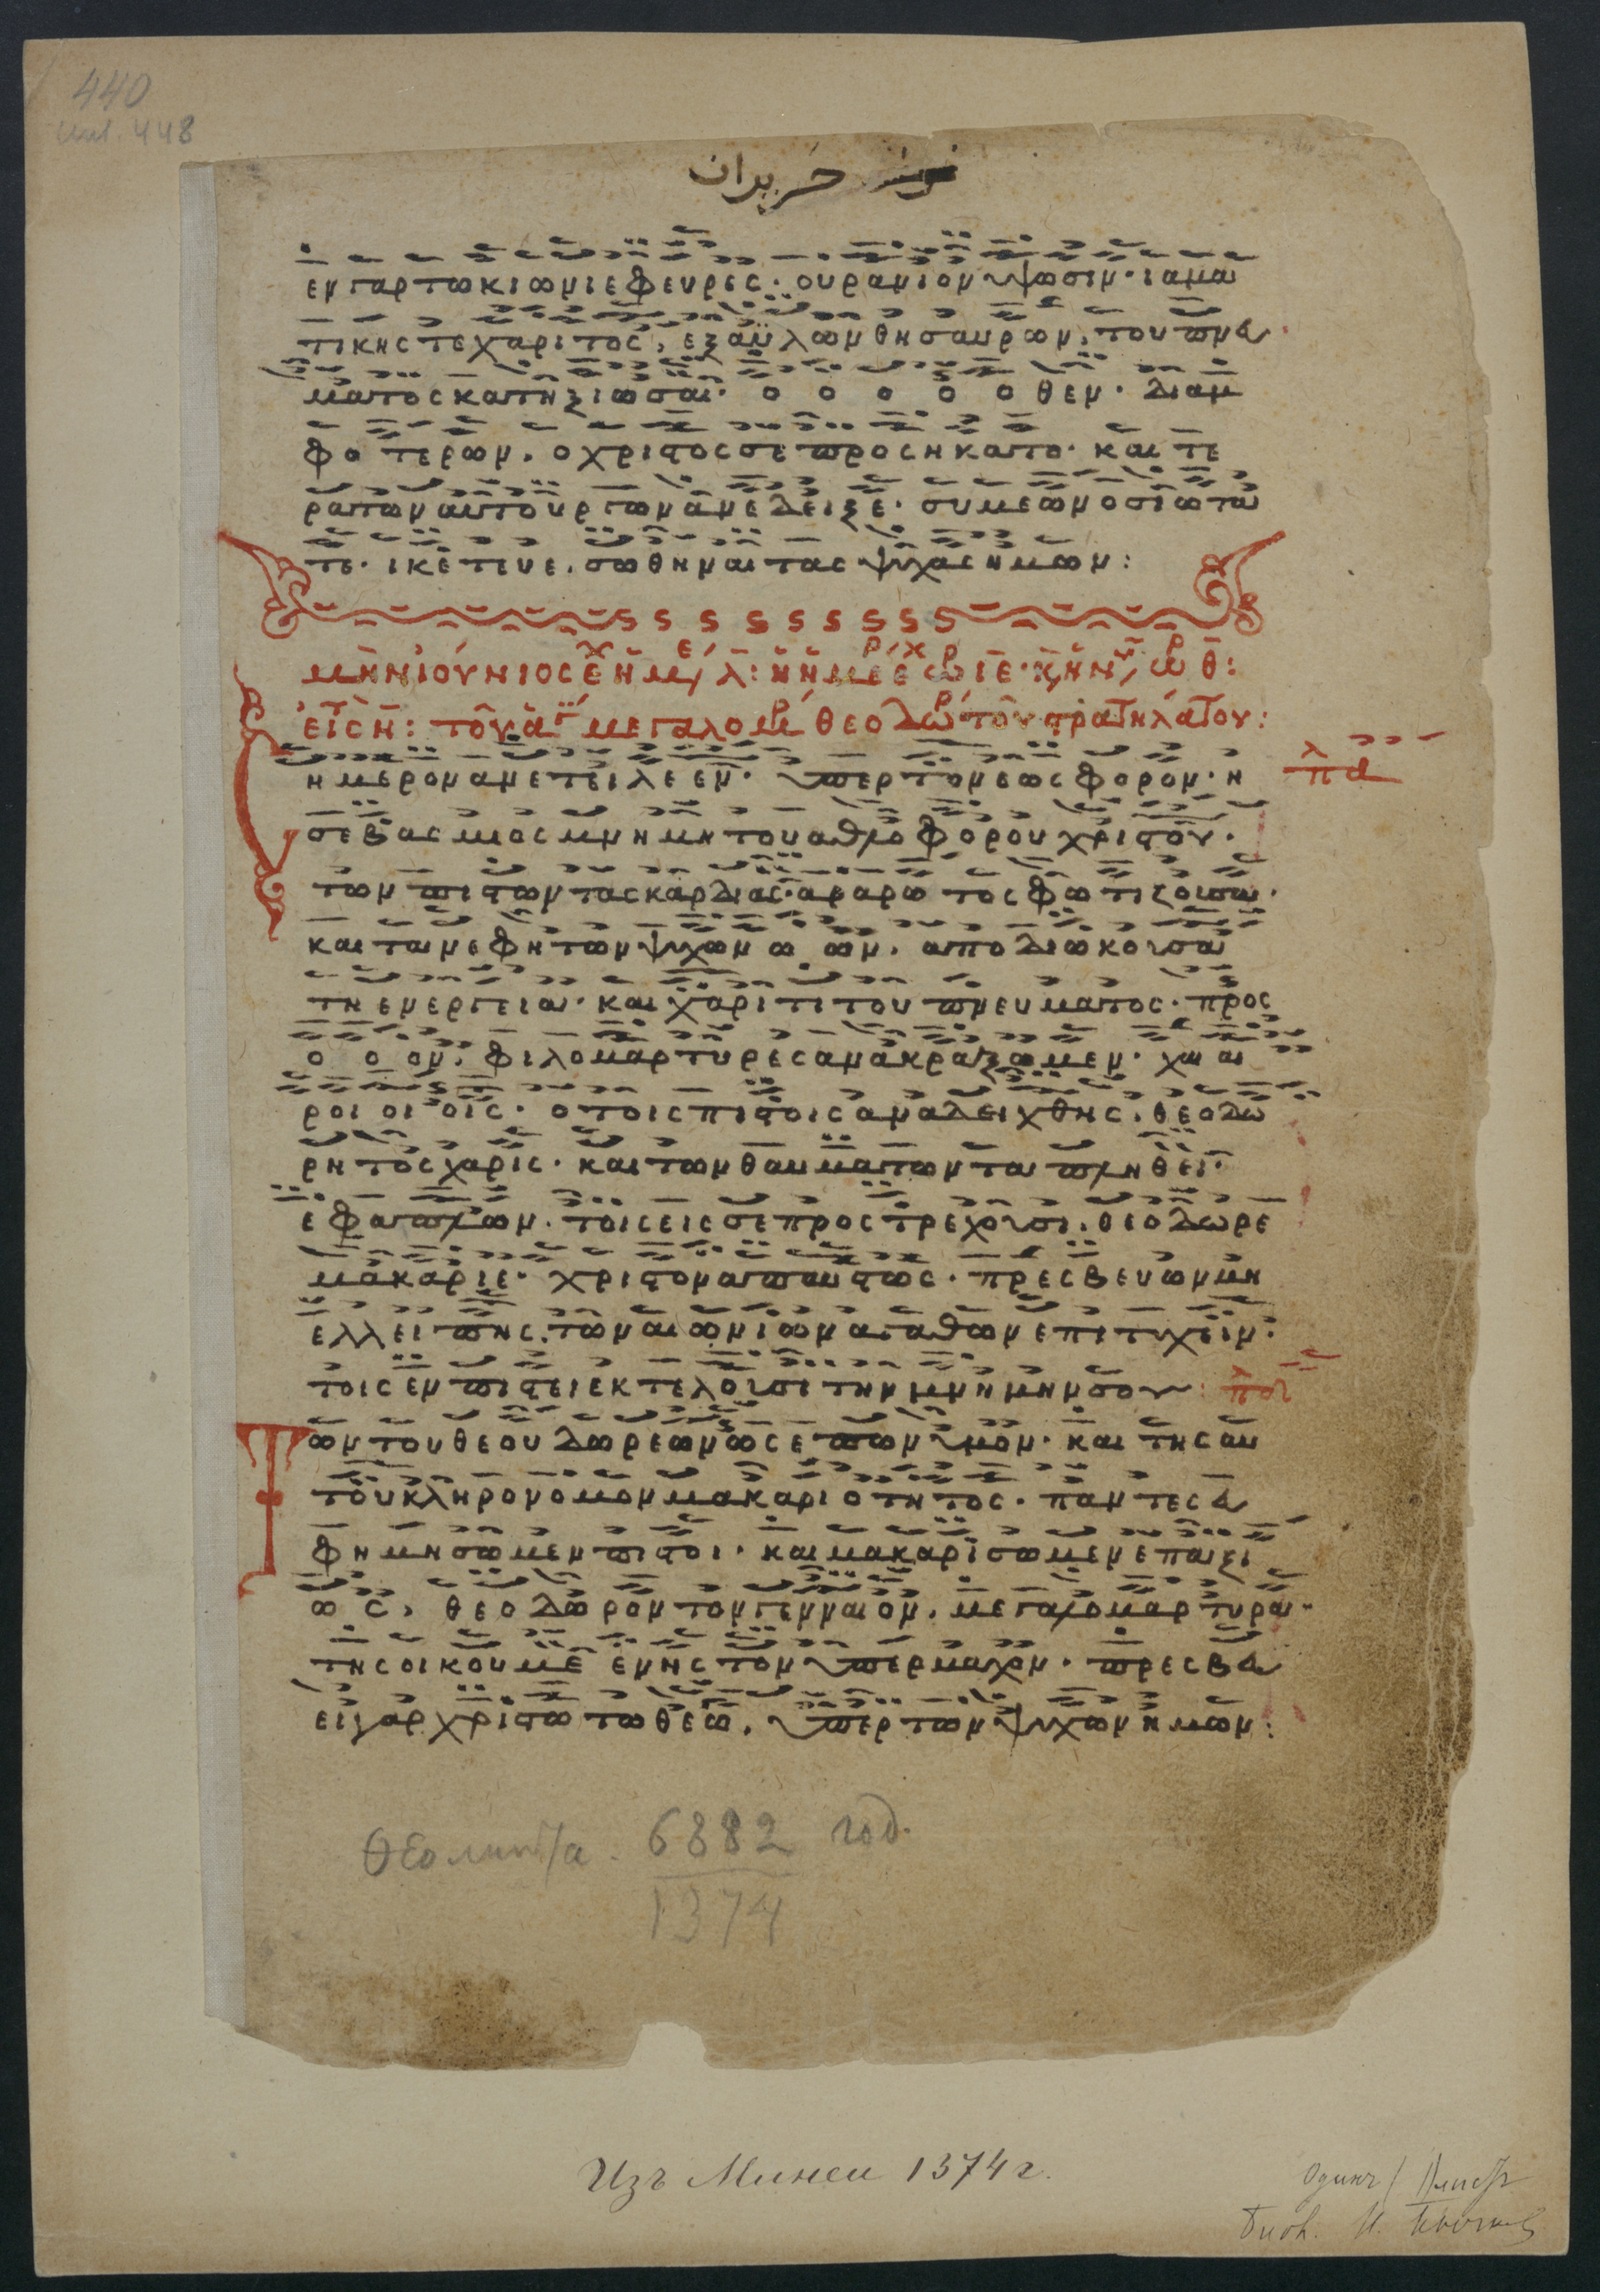 440
حزيران
εν γαρ τω κιωνι εφευρες · ουρανιον υψωσιν · ιαμα
τικης τε χαριτος, εξ αϋλων θησαυρων, του πνευ
ματος κατηξιωσαι · ο ο ο ο ο θεν · δι αμ
φο τερων, ο χριστος σε προσηκατο · και τε
ρατων αυτουργον ανεδειξε · συμεων οσιωτα
τε · ικετευε, σωθηναι τας ψυχας ημων :
S S S S S S S
ημερον ανετειλεεν · υπερ τον εωσφορον · η
σεβασμιος μνημη του αθλοφορου χριστου ·
των πιστων τας καρδιας · αραρω τος φωτιζουσα ·
και τα νεφη των ψυχων ω ων, αποδιωκουσα
τη ενεργεια · και χαριτι του πνευματος · προς
ο ο ον, φιλομαρτυρες ανακραξωμεν · χαι αι
ροι οι οις · ο τοις πιστοις αναδειχθης, θεοδω
ρητος χαρις · και των θαυματων τα πληθει ·
εφαπλων · τοις εις σε προστρεχουσι, θεοδωρε
μακαριε · χριστον απαυστως · πρεσβευων μη
ελλειπης, των αιωνιων αγαθων επιτυχειν ·
τοις εν πιστει εκτελουσι την μνημην σου :
Των του θεου δωρεων ως επωνυμον · και της αυ
του κληρονομον μακαριοτητος · παντες ευ
φημησωμεν πιστοι · και μακαρισωμεν επαξι
ω ς, θεοδωρον τον γενναιον, μεγαλομαρτυρα ·
της οικουμε ενης τον υπερμαχον · πρεσβευ
ει γαρ χριστω τω θεω, υπερ των ψυχων ημων :
6882 год.
1374
Изъ Минеи 1374 г.